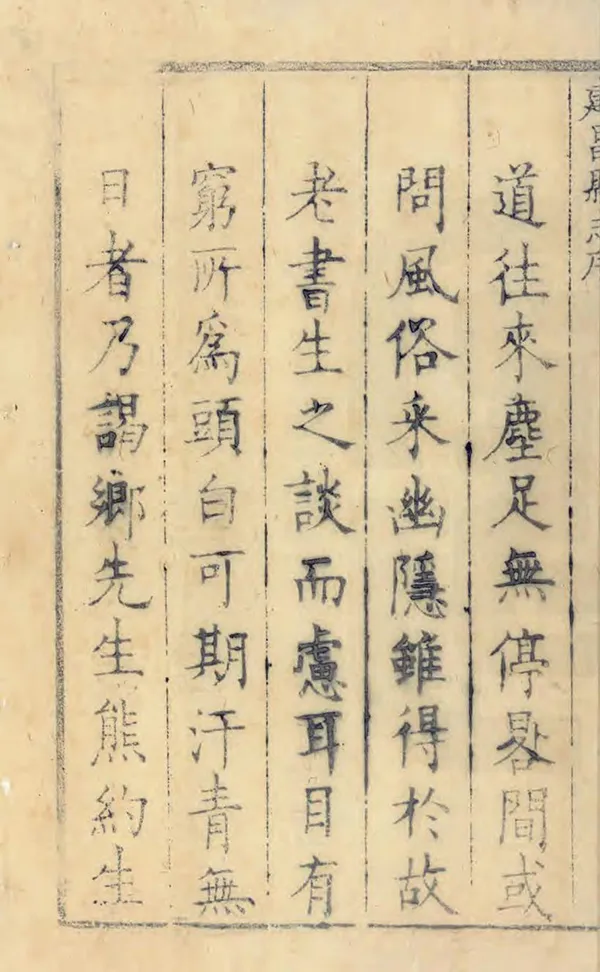 建昌縣志序
道往來塵足無停晷間或
問風俗采幽隱雖得於故
老書生之談而慮耳目有
窮所爲頭白可期汗青無
日者乃謁鄉先生熊約生